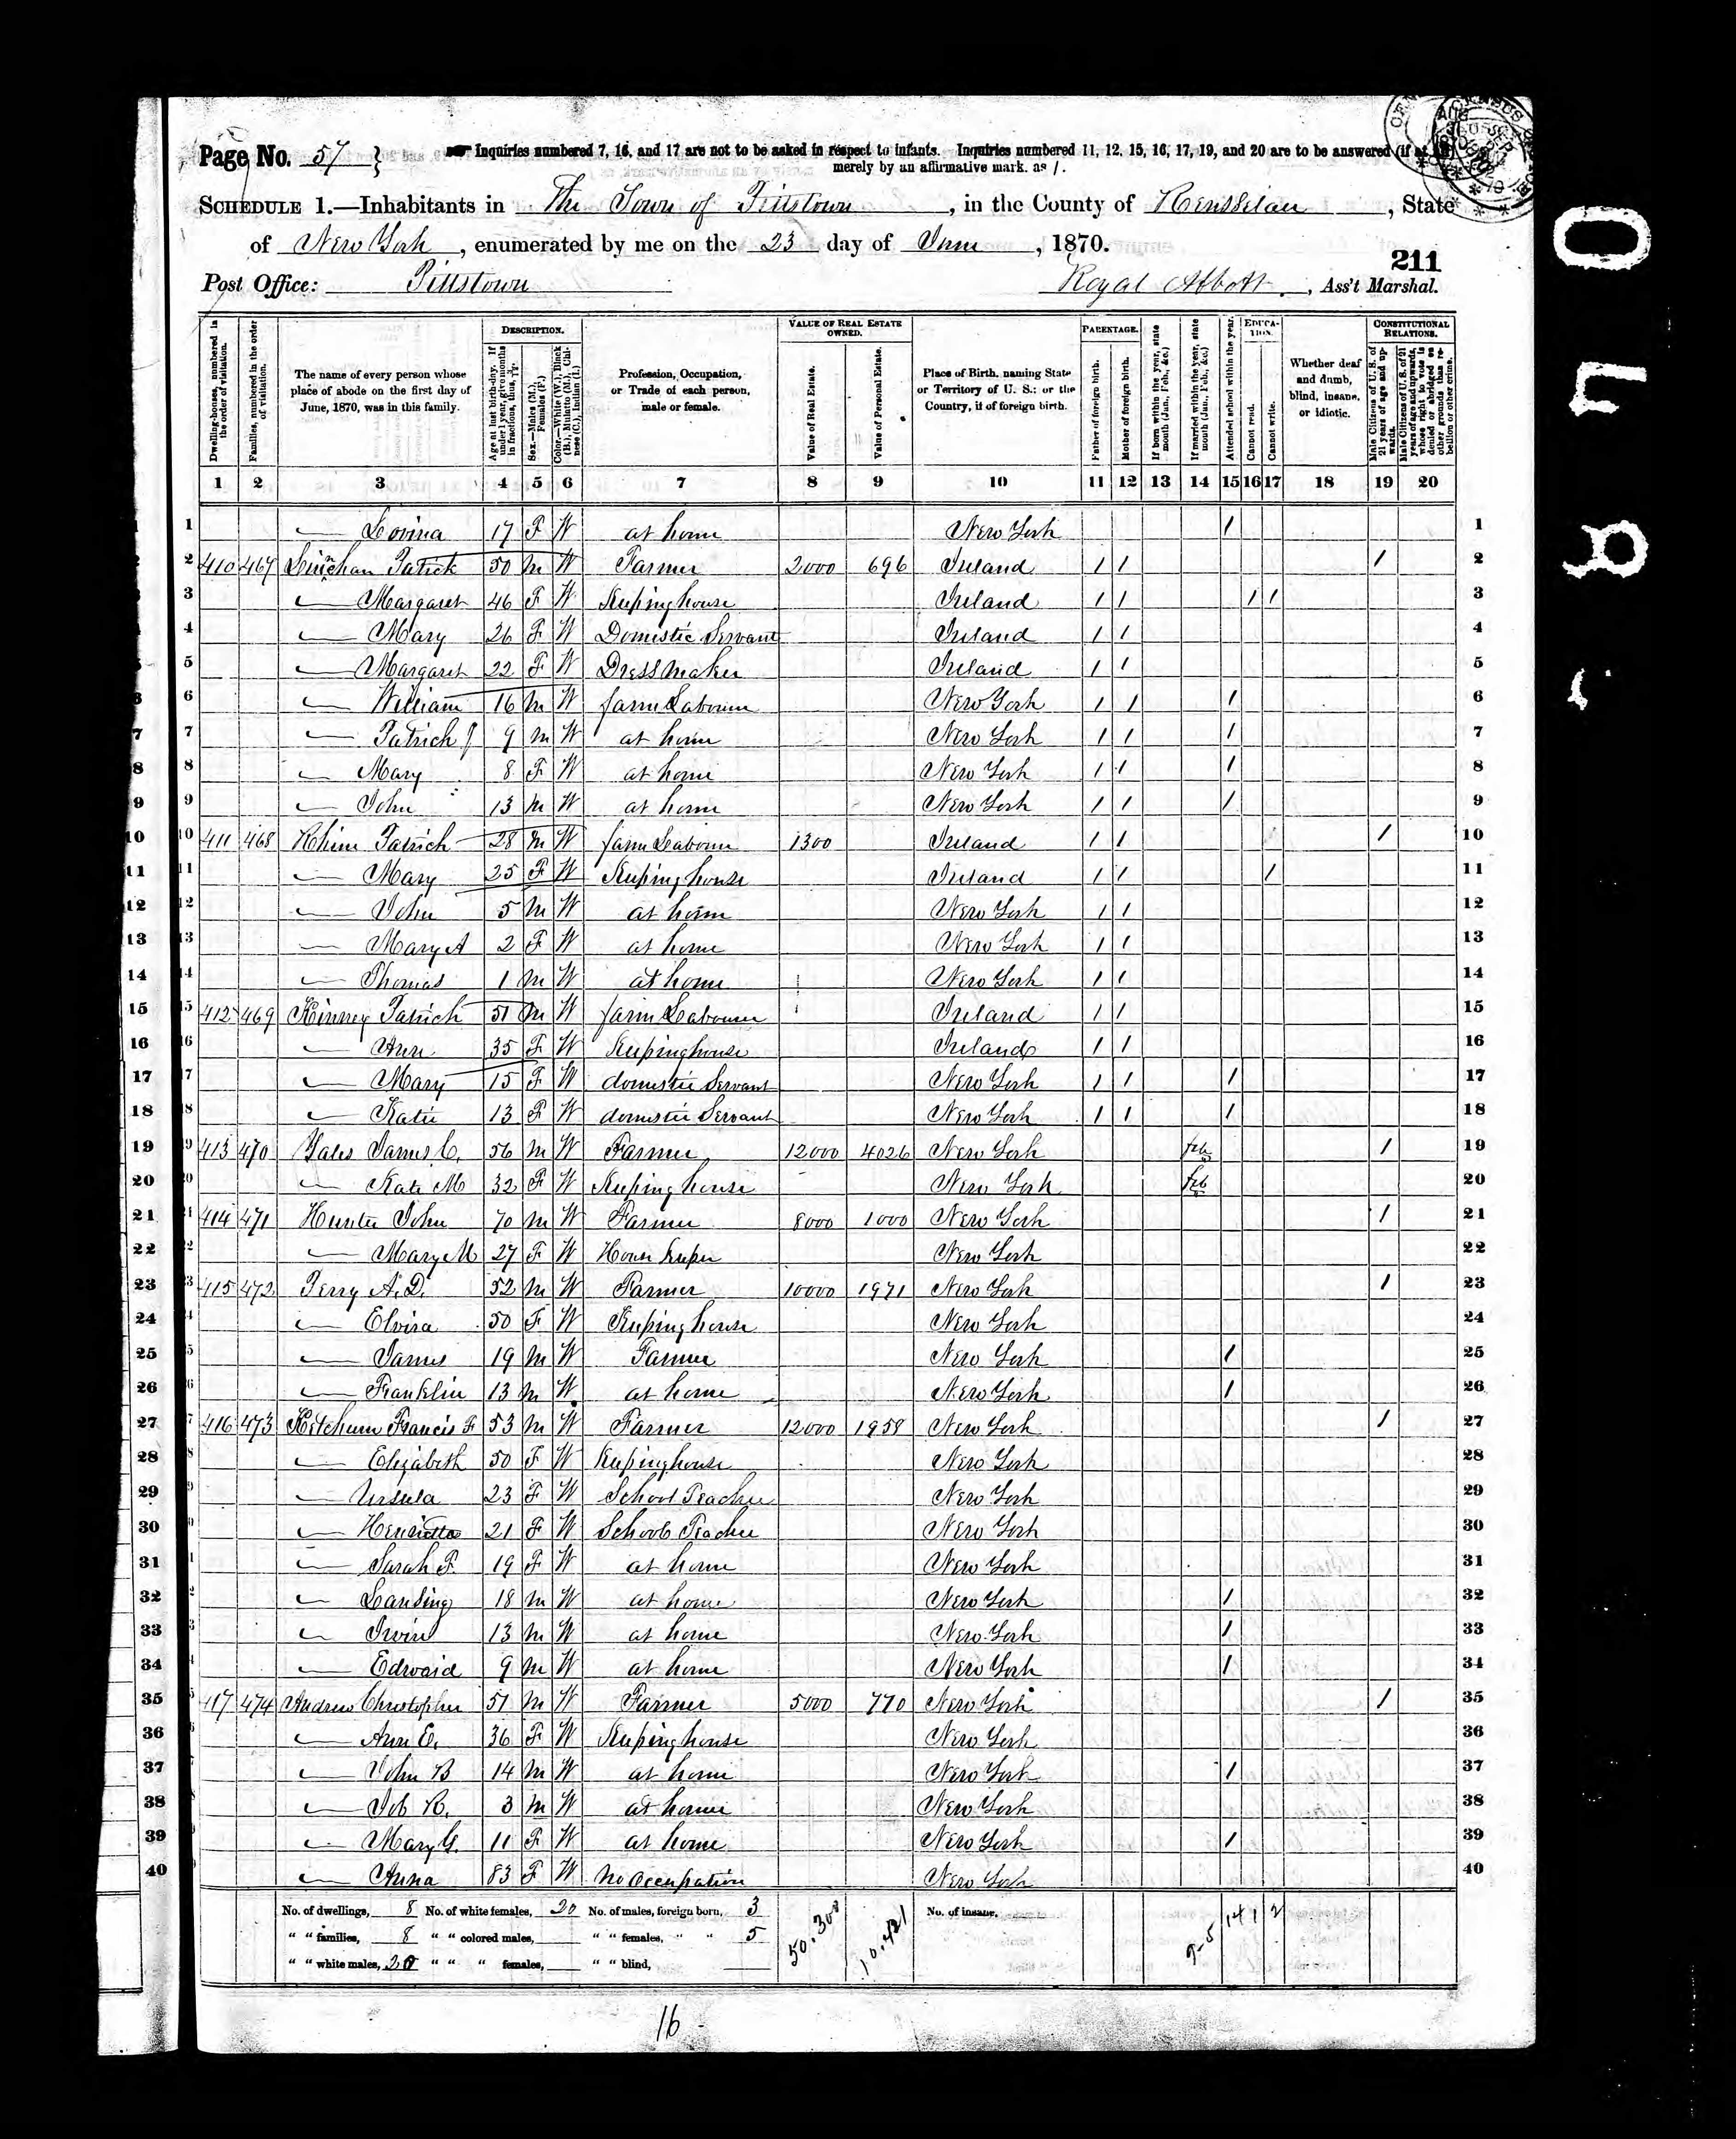 Page No. 57
Inquiries numbered 7, 16, and 17 are not to be asked in respect to infants. Inquiries numbered 11, 12, 15, 16, 17, 19, and 20 are to be answered (if at all)
merely by an affirmative mark, as /.
SCHEDULE 1.—Inhabitants in The Town of Pittstown, in the County of Rensselaer, State
of New York, enumerated by me on the 23 day of June, 1870.
211
Post Office: Pittstown Royal Abbott, Ass't Marshal.
Dwelling-houses, numbered in the order of visitation.
Families, numbered in the order of visitation.
The name of every person whose place of abode on the first day of June, 1870, was in this family.
DESCRIPTION.
Age at last birth-day. If under 1 year, give months in fractions, thus, 3/12.
Sex.—Males (M.), Females (F.)
Color.—White (W.), Black (B.), Mulatto (M.), Chinese (C.), Indian (I.)
Profession, Occupation, or Trade of each person, male or female.
VALUE OF REAL ESTATE OWNED.
Value of Real Estate.
Value of Personal Estate.
Place of Birth, naming State or Territory of U. S.; or the Country, if of foreign birth.
PARENTAGE.
Father of foreign birth.
Mother of foreign birth.
If born within the year, state month (Jan., Feb., &c.)
If married within the year, state month (Jan., Feb., &c.)
Attended school within the year.
EDUCATION.
Cannot read.
Cannot write.
Whether deaf and dumb, blind, insane, or idiotic.
CONSTITUTIONAL RELATIONS.
Male Citizens of U. S. of 21 years of age and upwards.
Male Citizens of U. S. of 21 years of age and upwards, whose right to vote is denied or abridged on other grounds than rebellion or other crime.
1 2 3 4 5 6 7 8 9 10 11 12 13 14 15 16 17 18 19 20
1 — Lovina 17 F W at home New York / 1
2 410 467 Linnehan Patrick 50 M W Farmer 2000 696 Ireland / / / 2
3 — Margaret 46 F W Keeping house Ireland / / / / 3
4 — Mary 26 F W Domestic Servant Ireland / / 4
5 — Margaret 22 F W Dress Maker Ireland / / 5
6 — William 16 M W farm Labourer New York / / / 6
7 — Patrick J 9 M W at home New York / / / 7
8 — Mary 8 F W at home New York / / / 8
9 — John 13 M W at home New York / / / 9
10 411 468 Patrick 28 M W farm Labourer 1300 Ireland / / / 10
11 — Mary 25 F W Keeping house Ireland / / / 11
12 — John 5 M W at home New York / / 12
13 — Mary A 2 F W at home New York / / 13
14 — Thomas 1 M W at home New York / / 14
15 412 469 Kinney Patrick 51 M W farm Labourer Ireland / / 15
16 — Ann 35 F W Keeping house Ireland / / 16
17 — Mary 15 F W domestic Servant New York / / / 17
18 — Katie 13 F W domestic Servant New York / / / 18
19 413 470 Yates James C. 56 M W Farmer 12000 4026 New York feb / 19
20 — Kate M 32 F W Keeping house New York feb 20
21 414 471 Hunter John 70 M W Farmer 8000 1000 New York / 21
22 — Mary M 27 F W House Keeper New York 22
23 415 472 Perry A. D. 52 M W Farmer 10000 1971 New York / 23
24 — Elvira 50 F W Keeping house New York 24
25 — James 19 M W Farmer New York / 25
26 — Franklin 13 M W at home New York / 26
27 416 473 Ketchum Francis F 53 M W Farmer 12000 1958 New York / 27
28 — Elizabeth 50 F W Keeping house New York 28
29 — Ursula 23 F W School Teacher New York 29
30 — Henrietta 21 F W School Teacher New York 30
31 — Sarah F. 19 F W at home New York 31
32 — Lansing 18 M W at home New York / 32
33 — Irvin 13 M W at home New York / 33
34 — Edward 9 M W at home New York / 34
35 417 474 Andrew Christopher 51 M W Farmer 5000 770 New York / 35
36 — Ann E. 36 F W Keeping house New York 36
37 — John B 14 M W at home New York / 37
38 — Job R. 3 M W at home New York 38
39 — Mary G. 11 F W at home New York / 39
40 — Anna 83 F W No Occupation New York 40
No. of dwellings, 8 No. of white females, 20 No. of males, foreign born, 3 50.300 10.421 No. of insane, 14 1 2
" " families, 8 " " colored males, " " females, " " 5
" " white males, 20 " " " females, " " blind,
16